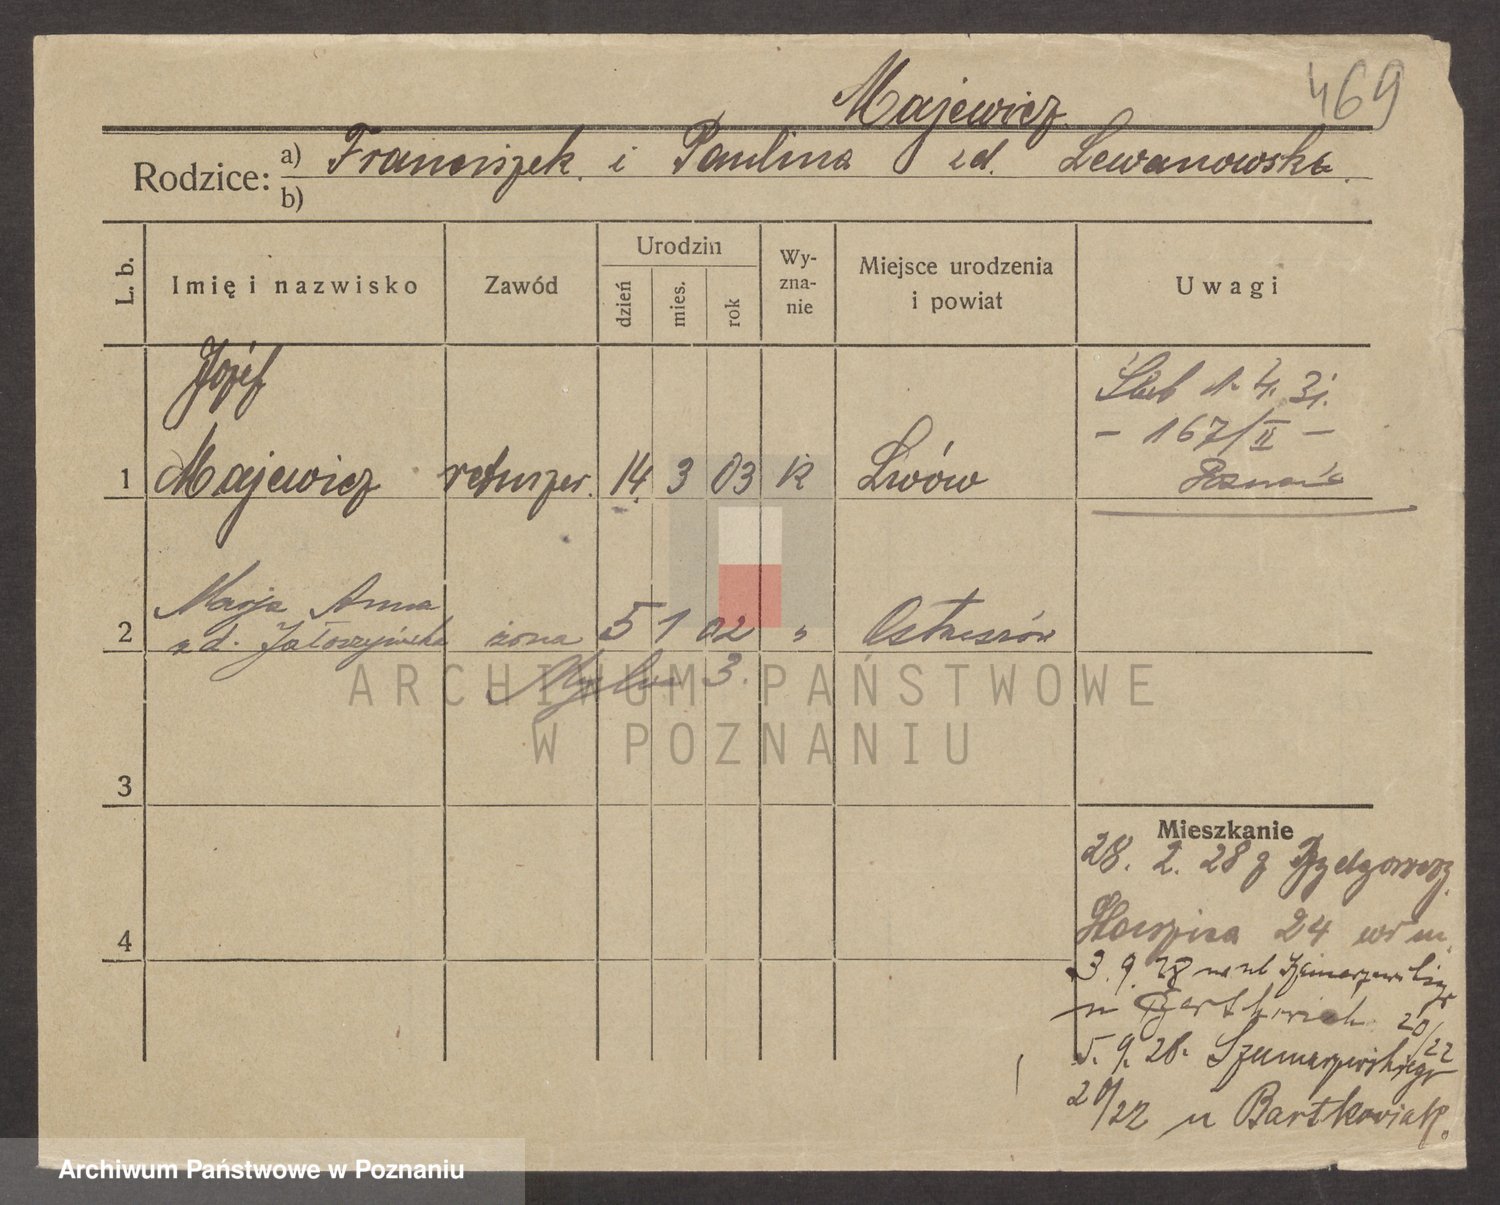 469
Majewicz
Rodzice: a) Franciszek i Paulina zd. Lewanowska.
b)
L. b. Imię i nazwisko Zawód Urodzin dzień mies. rok Wy-zna-nie Miejsce urodzenia i powiat Uwagi
Józef
1 Majewicz retuszer. 14 3 03 k Lwów
Ślub 1. 4. 31.
- 167/II -
Poznań
Marja Anna
2 zd. Jałoszyńska żona 5 1 02 " Ostrzeszów
3.
3
4
Mieszkanie
28. 2. 28 z Bydgoszcz.
24 w m.
3. 9. 28
u Bartkowiak 20/22
5. 9. 28. Szamarzewskiego
20/22 u Bartkowiak.
ARCHIWUM PAŃSTWOWE
W POZNANIU
Archiwum Państwowe w Poznaniu